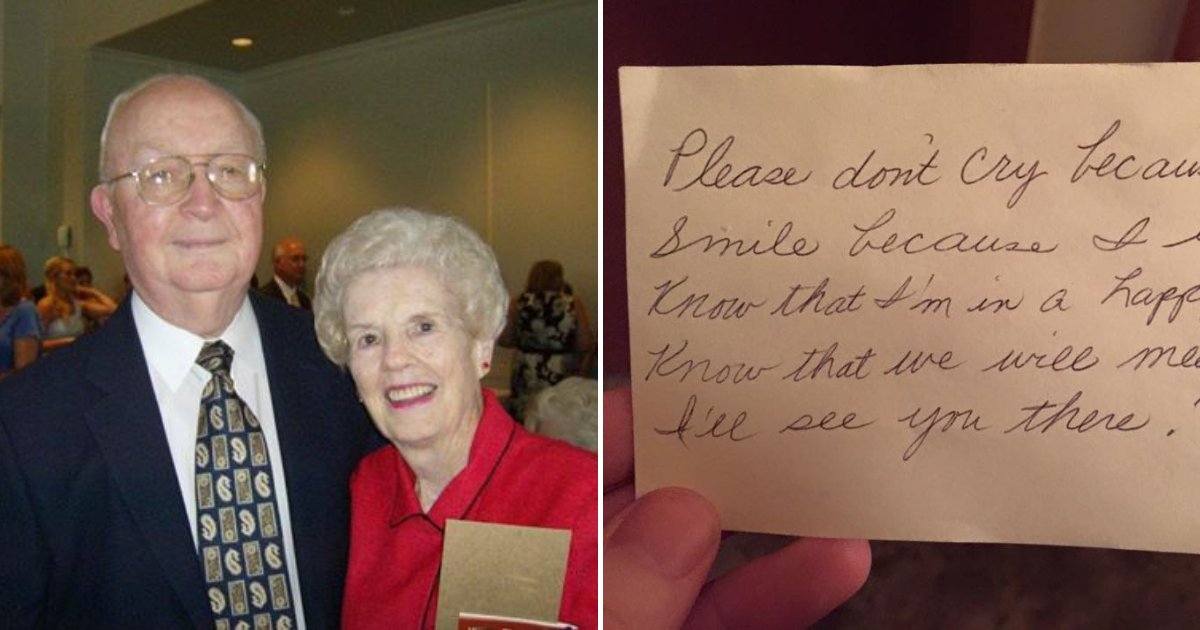 Please don't cry because
Smile because I
Know that I'm in a
Know that we will
I'll see you there.